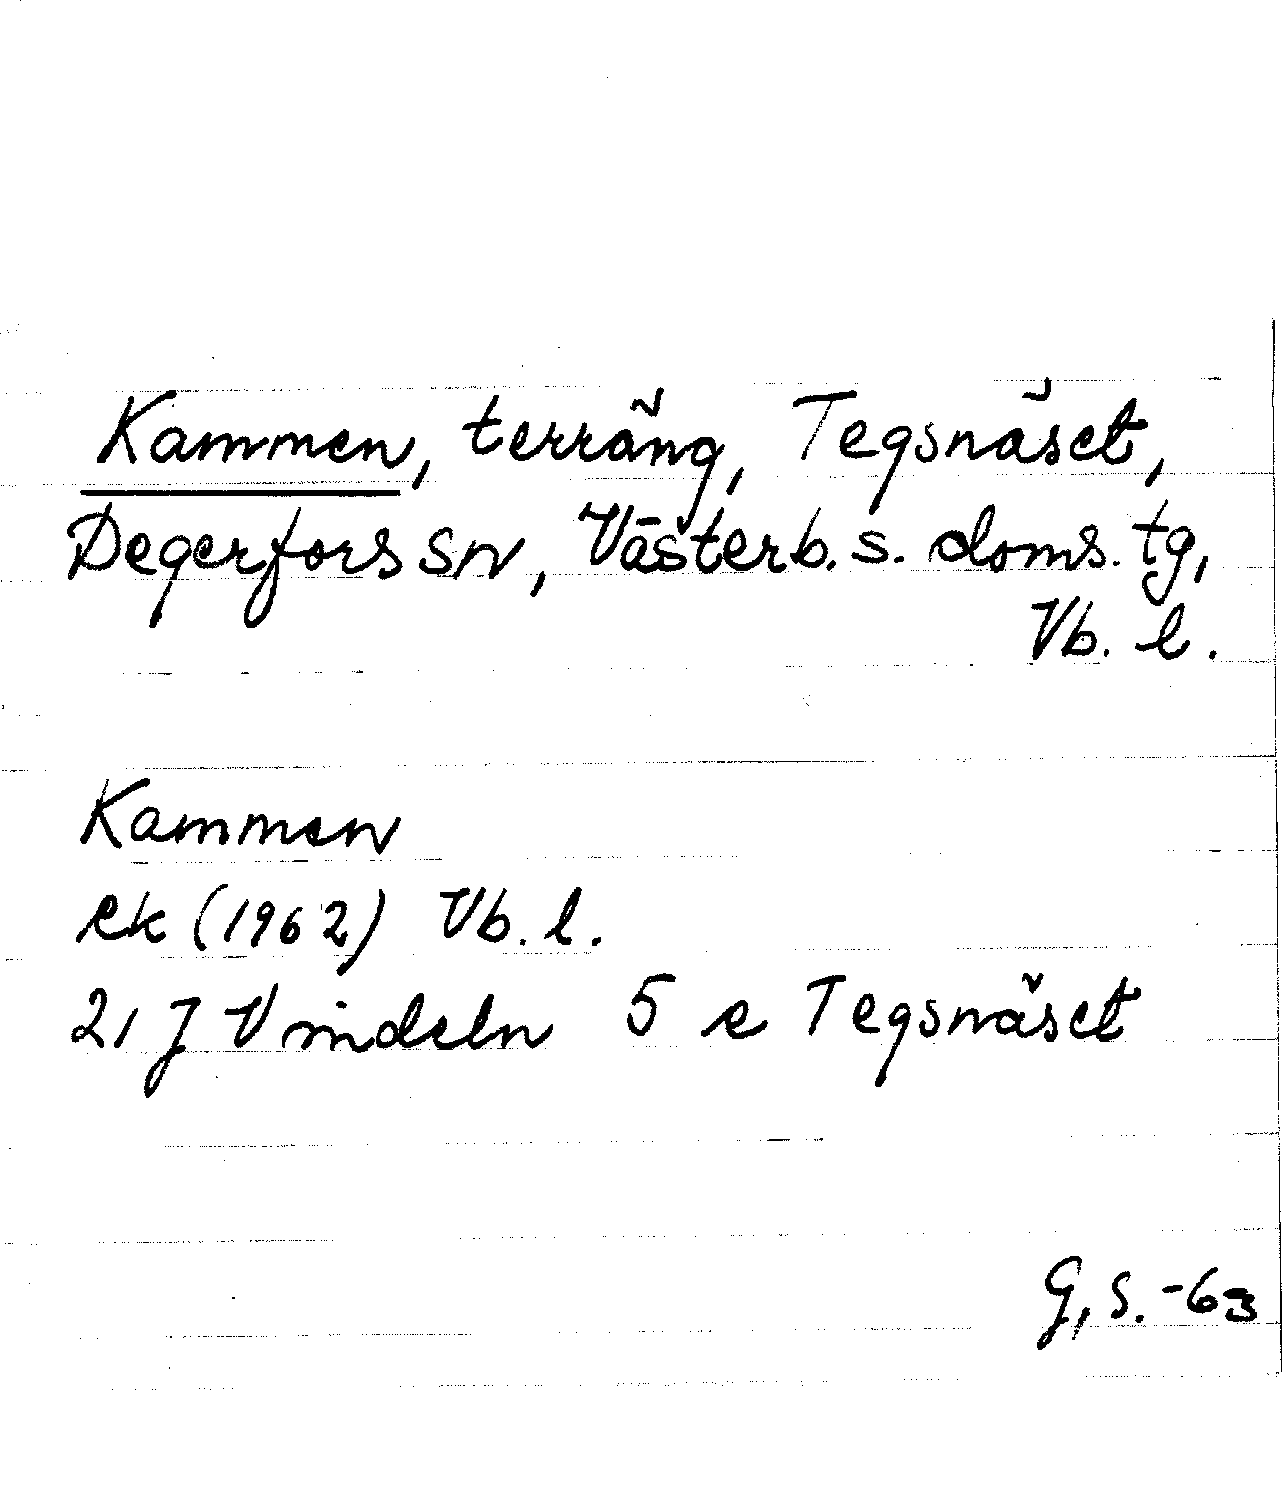 Kammen, terräng, Tegsnäset,
Degerfors sn, Västerb. s. doms. tg,
Vb. l.
Kammen
ek (1962) Vb. l.
21 J Vindeln 5 e Tegsnäset
G, S. -63